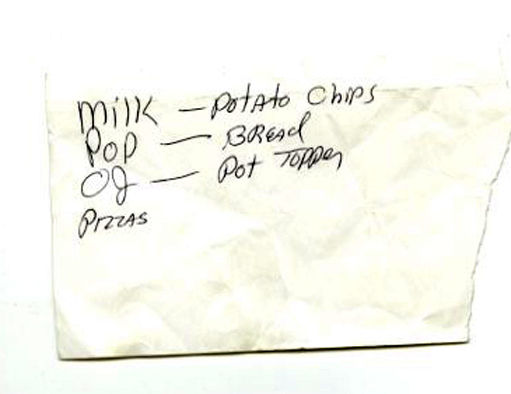 Milk — Potato Chips
Pop — Bread
OJ — Pot
Pizzas